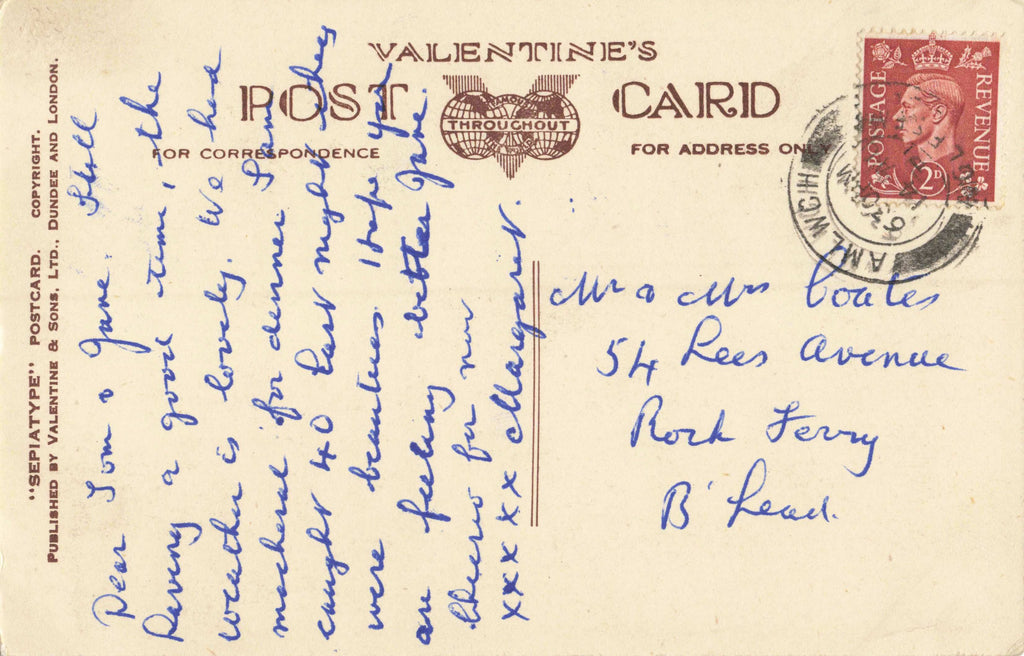 VALENTINE'S
POST CARD
FAMOUS
THROUGHOUT
THE WORLD
FOR CORRESPONDENCE
FOR ADDRESS ONLY
"SEPIATYPE" POSTCARD. COPYRIGHT.
PUBLISHED BY VALENTINE & SONS, LTD., DUNDEE AND LONDON.
Dear Tom & Jane. Still
Having a good time, the
weather is lovely. We had
macheral for dinner Sam
caught 40 last night they
were beauties. Hope you
are feeling better Jane.
Cheerio for now
xxxx x Margaret.
Mr & Mrs Coates
54 Lees Avenue
Rock Ferry
B'head.
POSTAGE
REVENUE
2D
AMLWCH